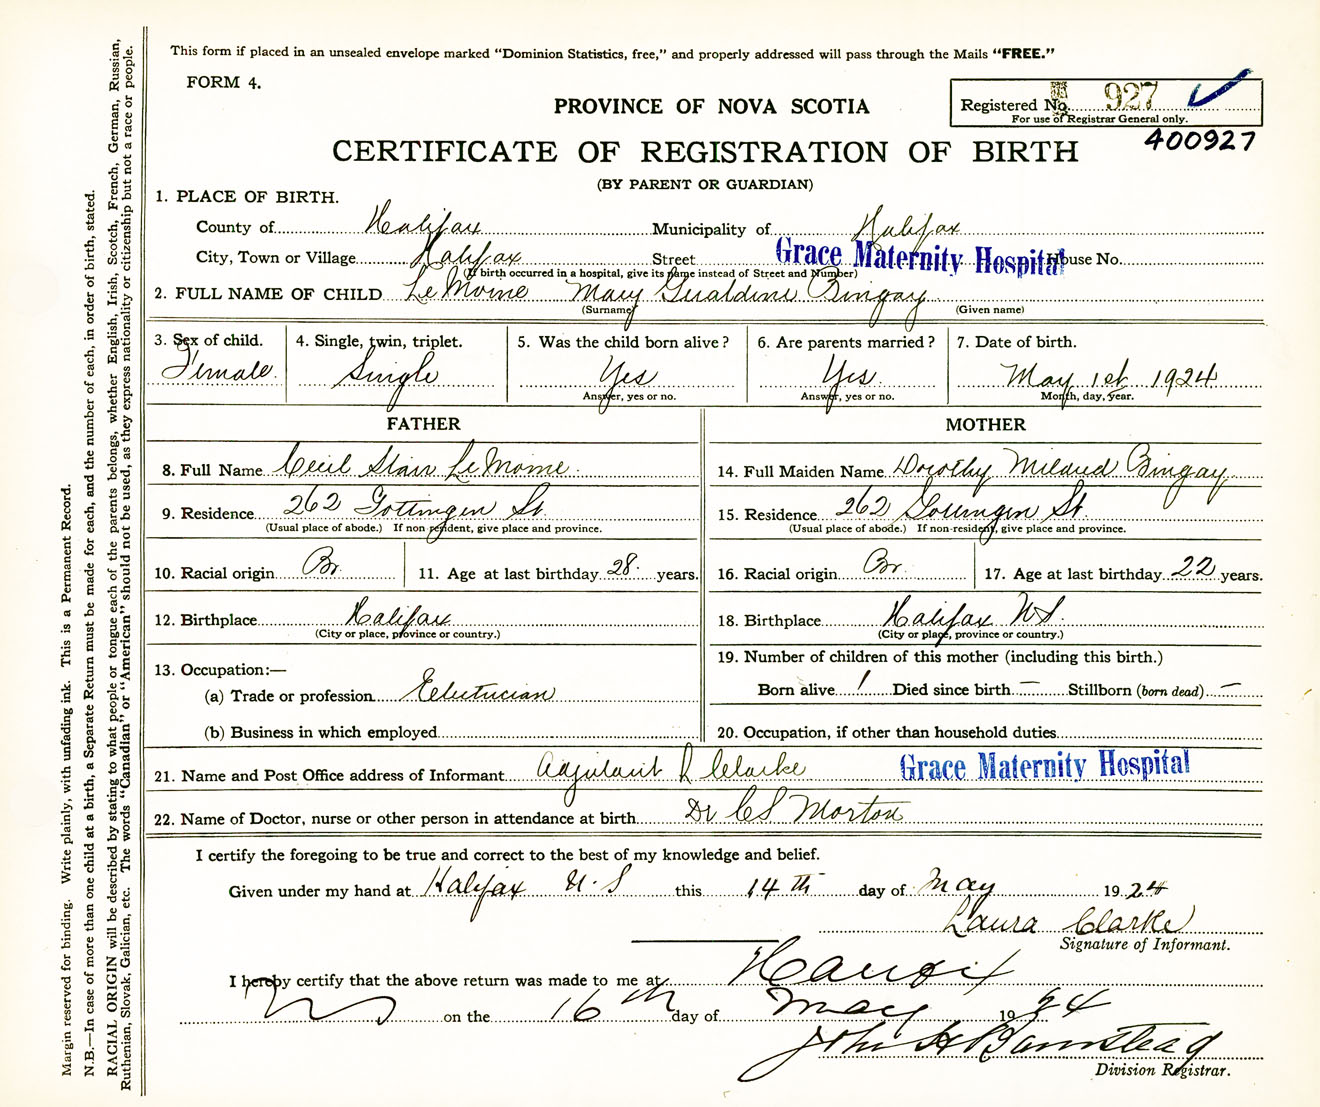 This form if placed in an unsealed envelope marked "Dominion Statistics, free," and properly addressed will pass through the Mails "FREE."
FORM 4.
PROVINCE OF NOVA SCOTIA
Registered No. 927
For use of Registrar General only.
400927
CERTIFICATE OF REGISTRATION OF BIRTH
(BY PARENT OR GUARDIAN)
1. PLACE OF BIRTH.
County of Halifax Municipality of Halifax
City, Town or Village Halifax Street Grace Maternity Hospital House No.
(If birth occurred in a hospital, give its name instead of Street and Number)
2. FULL NAME OF CHILD LeMoine Mary Geraldine Bingay
(Surname) (Given name)
3. Sex of child. 4. Single, twin, triplet. 5. Was the child born alive? 6. Are parents married? 7. Date of birth.
Female Single Yes Yes. May 1st 1924
Answer, yes or no. Answer, yes or no. Month, day, year.
FATHER MOTHER
8. Full Name Cecil Stair LeMoine 14. Full Maiden Name Dorothy Mildred Bingay
9. Residence 262 Gottingen St. 15. Residence 262 Gottingen St.
(Usual place of abode.) If non resident, give place and province. (Usual place of abode.) If non-resident, give place and province.
10. Racial origin Br. 11. Age at last birthday 28 years. 16. Racial origin Br. 17. Age at last birthday 22 years.
12. Birthplace Halifax 18. Birthplace Halifax NS.
(City or place, province or country.) (City or place, province or country.)
13. Occupation:— 19. Number of children of this mother (including this birth.)
(a) Trade or profession Electrician Born alive 1 Died since birth — Stillborn (born dead) —
(b) Business in which employed 20. Occupation, if other than household duties
21. Name and Post Office address of Informant Adjutant L Clarke Grace Maternity Hospital
22. Name of Doctor, nurse or other person in attendance at birth Dr CS Morton
I certify the foregoing to be true and correct to the best of my knowledge and belief.
Given under my hand at Halifax N.S this 14th day of May 1924
Laura Clarke
Signature of Informant.
I hereby certify that the above return was made to me at Halifax
NS on the 16th day of May 1924
John H Barnstead
Division Registrar.
Margin reserved for binding. Write plainly, with unfading ink. This is a Permanent Record.
N.B.—In case of more than one child at a birth, a Separate Return must be made for each, and the number of each, in order of birth, stated.
RACIAL ORIGIN will be described by stating to what people or tongue each of the parents belongs, whether English, Irish, Scotch, French, German, Russian,
Ruthenian, Slovak, Galician, etc. The words "Canadian" or "American" should not be used, as they express nationality or citizenship but not a race or people.